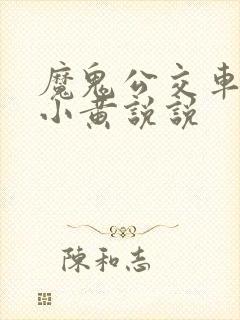 魔鬼公交車
小黄説説
陳和志